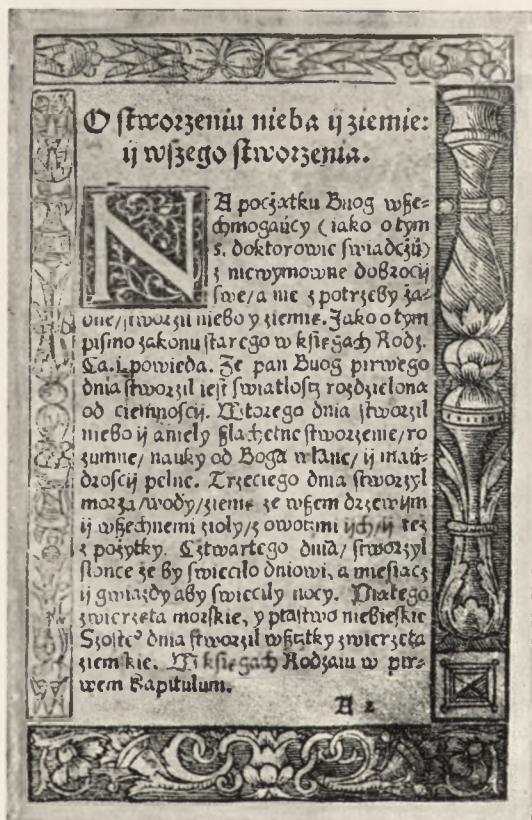 O stworzeniu nieba ij ziemie:
ij wszego stworzenia.
NA poczatku Buog wsze-
chmogaucy (iako o tym
s. doktorowie swiadczü)
z niewymowne dobrocij
swe/a nie z potrzeby ża-
dne/stworzil niebo y ziemie. Jako o tym
pismo zakonu starego w ksiegach Rodz.
Ca.j. powieda. Ze pan Buog pirwego
dnia stworzil iest swiatlosc rozdzielona
od ciemnoscij. Wtorego dnia stworzil
niebo ij aniely szlachetne stworzenie/ro
zumne/ nauky od Boga wlane/ ij mau-
droscij pelne. Trzeciego dnia stworzyl
morza/wody/zieme ze wssem drzewijm
ij wssechnemi zioly/z owotzmi ijch/ij tez
z pożytky. Cztwartego dnia/ stworzyl
slonce że by swiecilo dniowi, a miesiacz
ij gwiazdy aby swiecily nocy. Piatego
zwierzeta morskie, y ptastwo niebieskie
Szoste⁹ dnia stworzil wssitky zwierzeta
ziemskie. W ksiegach Rodzaiu w pir-
wem Kapitulum.
A 2